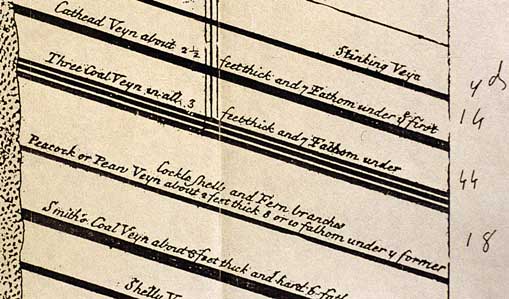 Stinking Veyn
Cathead Veyn about 2½ feet thick and 7 Fathom under yͤ first
yds
14
Three Coal Veyn in all 3 feet thick and 7 Fathom under
44
Cockle shells and Fern branches
Peacock or Pean Veyn about 2 feet thick 8 or 10 fathom under y former
18
Smith's Coal Veyn about 3 feet thick and hard 6 fath
Shelly V